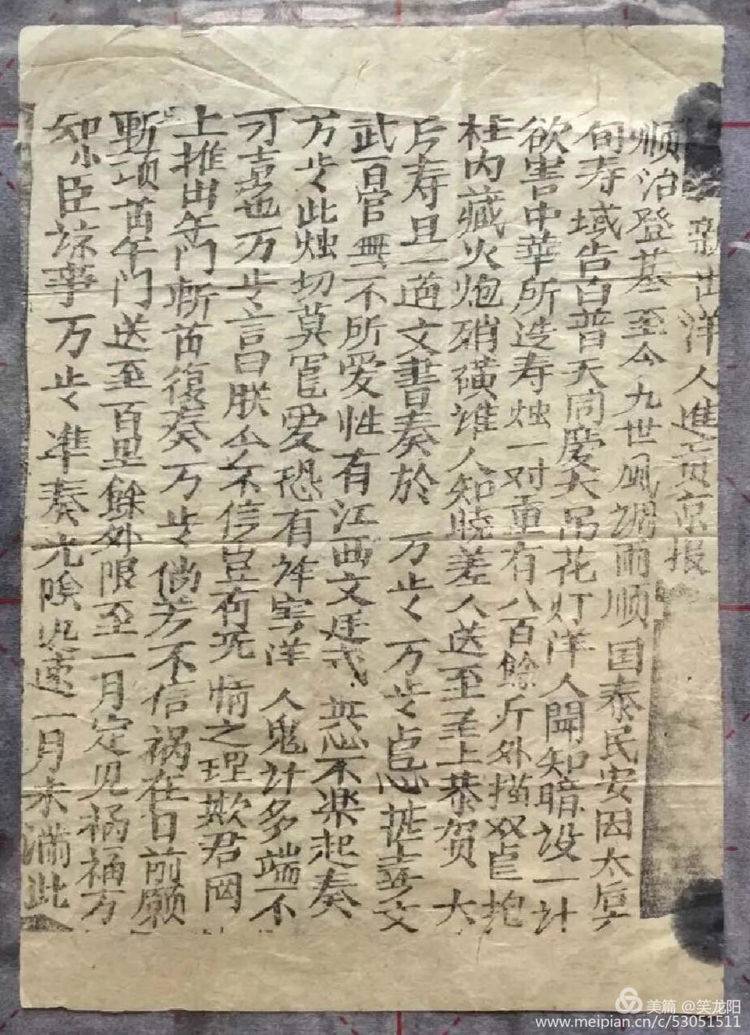 新出洋人進貢京报
顺治登基至今九世风调雨顺国泰民安因太后六
旬寿域告白普天同慶大吊花灯洋人開知暗设一计
欲害中华所造寿烛一对重有八百餘斤外描双龙抱
柱内藏火炮硝磺谁人知晓差人送至圣上恭贺
后寿旦一道文書奏於 万岁〻万岁龙心喜文
武百官無不所爱性有江西文廷式 不楽起奏
万岁此烛切莫爱恐有祥害洋人鬼计多端不
可言也万岁言曰朕公不信豈有死情之理欺君罔
上推出午门斬首復奏万岁倘若不信祸在目前願
斬頭首午门送至百里餘外限至一月定见祸福方
知臣諒事万岁準奏光陰迅速一月未满此
美篇 @笑龙阳
www.meipian.cn/c/53051511